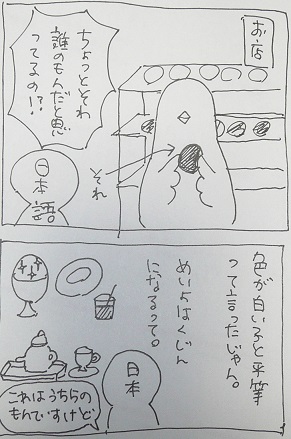 お店
ちょっとそれ
誰のもんだと思
ってるの!?
それ
日本語。
色が白い子と平等
って言ったじゃん。
めいよはくじん
になるって。
日本
これはうちらの
もんですけど